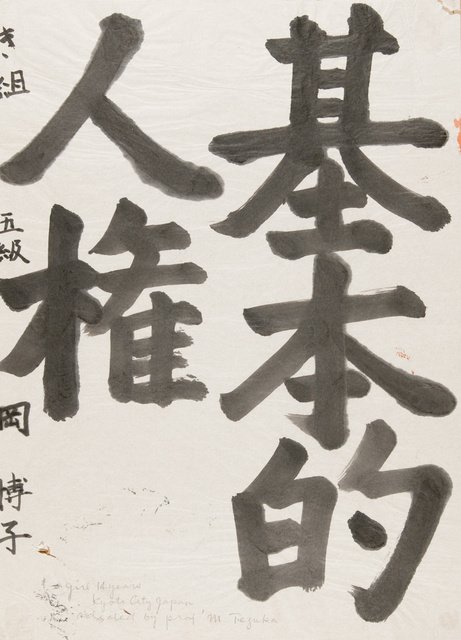 基本的
人権
き組 五級 岡 博子
girl 14 years
Kyoto City Japan
Selected by prof M Tezuka